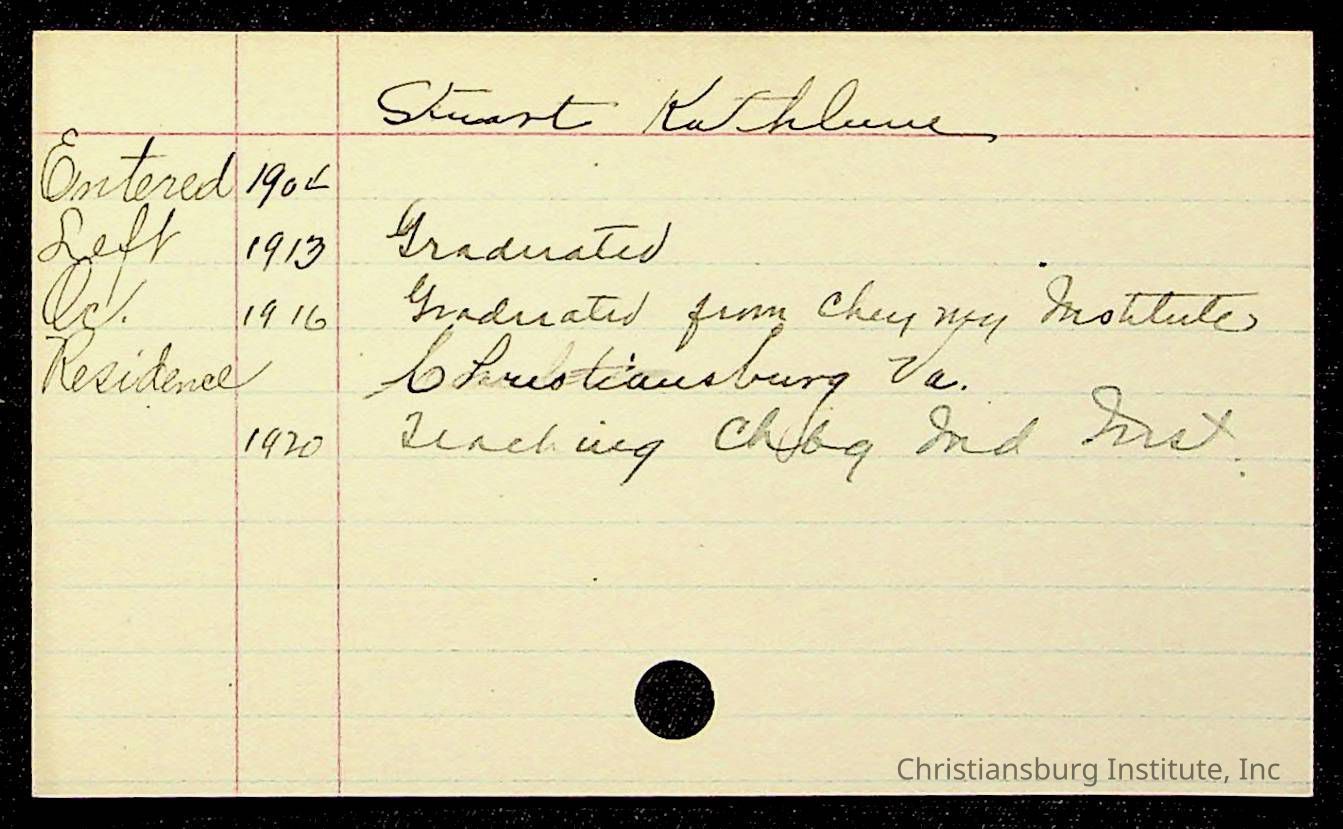 Stuart Kathleene
Entered 1904
Left 1913 Graduated
Oc. 1916 Graduated from Cheyney Institute
Residence Christiansburg Va.
1920 Teaching Chbg Ind Inst.
Christiansburg Institute, Inc